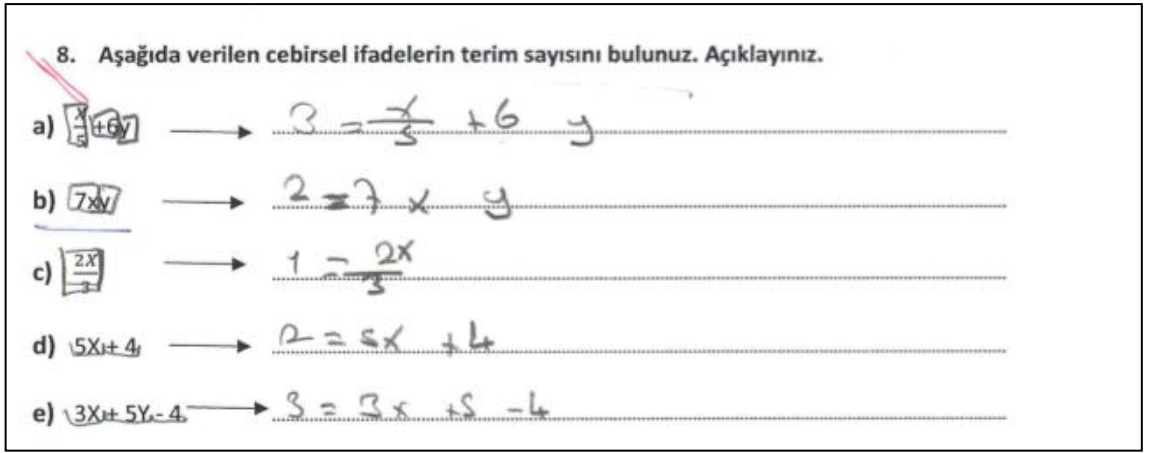 8. Aşağıda verilen cebirsel ifadelerin terim sayısını bulunuz. Açıklayınız.
a) x/5 +6y → 3 = x/5 +6 y
b) 7xy → 2 = 7 x y
c) 2X/3 → 1 = 2x/3
d) 5X+ 4 → 2 = 5x +4
e) 3X+ 5Y- 4 → 3 = 3x +5 -4